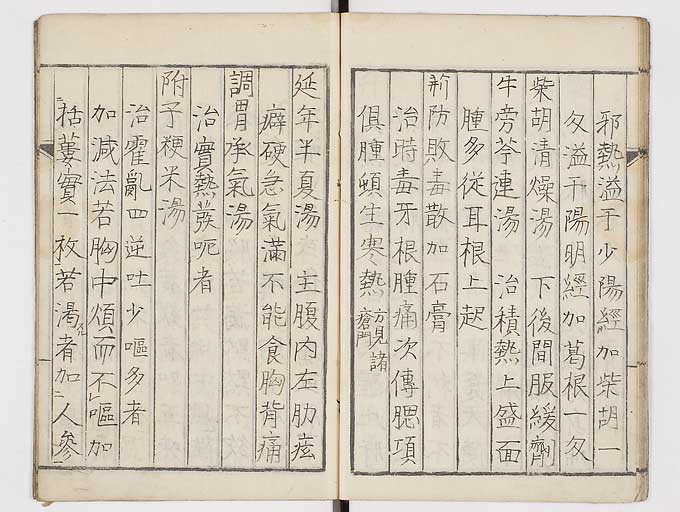 邪熱溢于少陽經加柴胡一
匁溢于陽明經加葛根一匁
柴胡清燥湯　下後間服緩劑
牛旁芩連湯　治積熱上盛面
腫多從耳根上起
荊防敗毒散加石膏
治時毒牙根腫痛次傳腮項
俱腫頓生寒熱方見諸瘡門
延年半夏湯　主腹內左肋痃
癖硬急氣滿不能食胸背痛
調胃承氣湯
治實熱發呃者
附子粳米湯
治霍亂四逆吐少嘔多者
加減法若胸中煩而不嘔加
栝蔞實一枚若渴者加人參